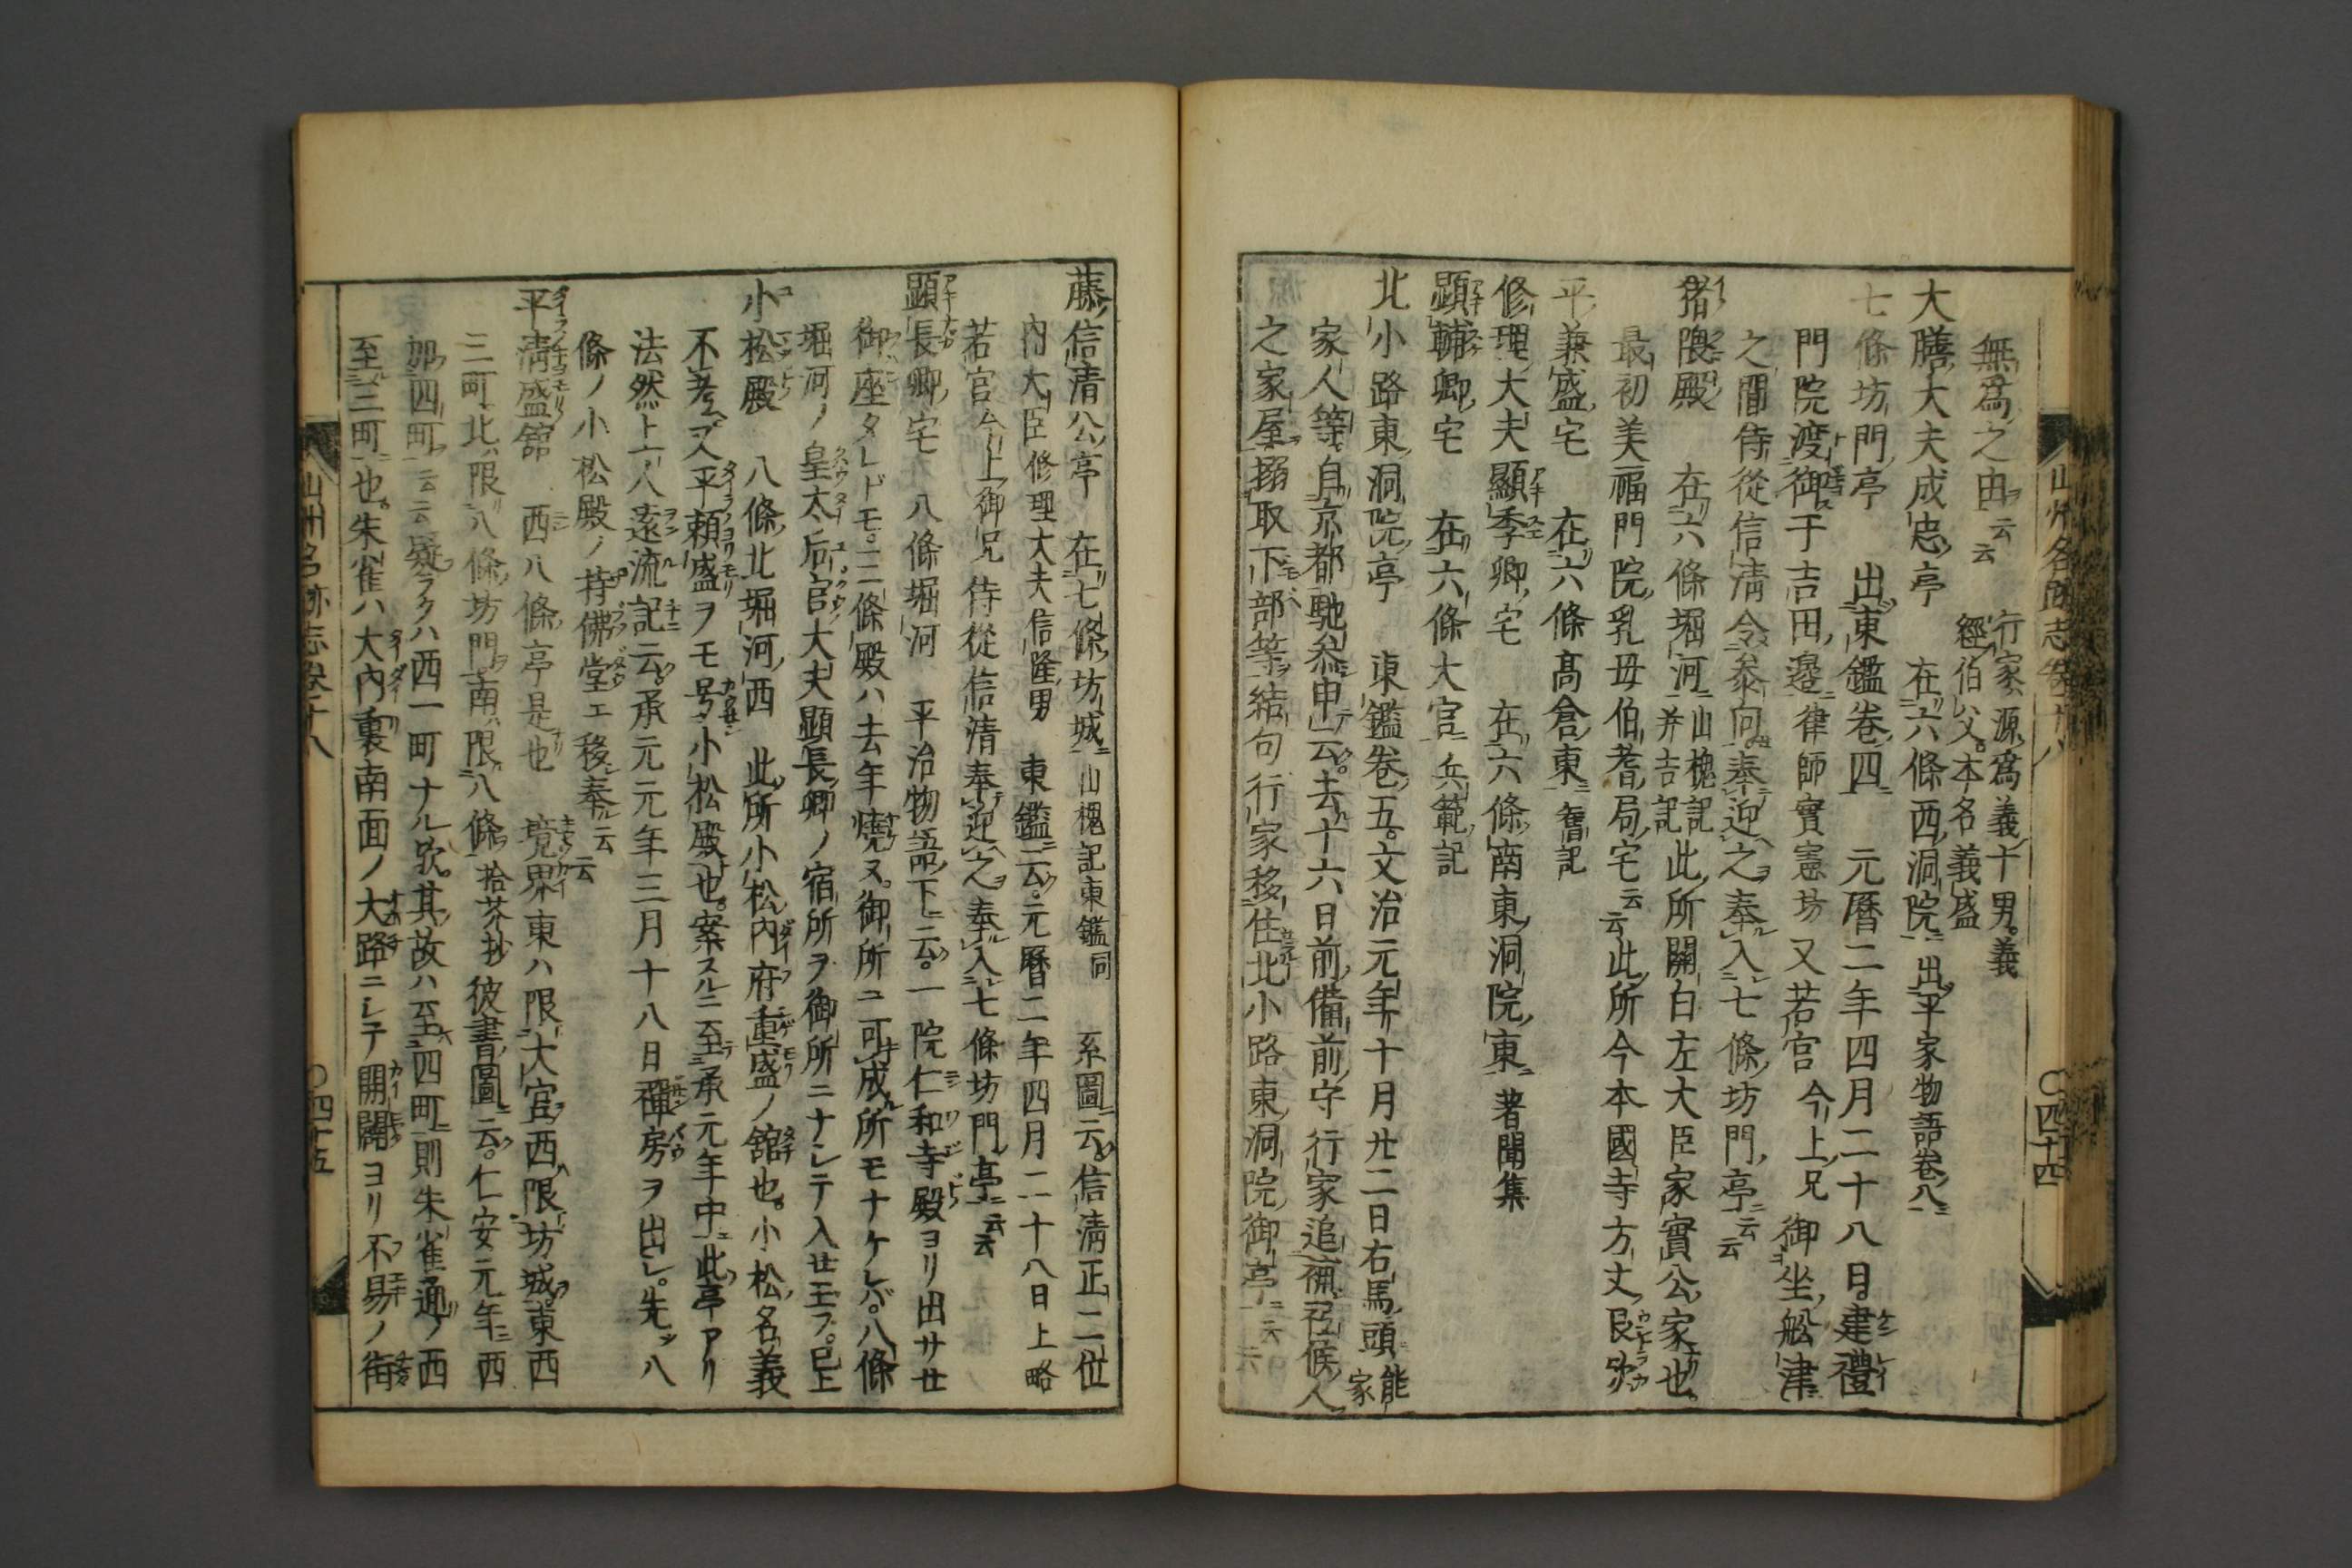 山州名跡志巻十八
〇四十四
無爲之由云云 行家、源爲義十男。義
經伯父。本名義盛
大膳大夫成忠亭 在六條西洞院 出平家物語卷八
七條坊門亭 出東鑑卷四 元暦二年四月二十八日。建禮
門院渡御于吉田邊律師實憲坊 又若宮 今上兄 御坐船津
之間侍從信淸令參向奉迎之奉入七條坊門亭云云
猪隈殿 在六條堀河 山槐記
并吉記 此所開白左大臣家實公家也。
最初美福門院乳母伯耆局宅云云此所今本國寺方丈艮欤
平兼盛宅 在六條高倉東 舊記
修理大夫顯季卿宅 在六條南東洞院東 著聞集
顯輔卿宅 在六條大宮 兵範記
北小路東洞院亭 東鑑卷五。文治元年十月廿二日右馬頭 能
家
家人等自京都馳參申云。去十六日前備前守行家追補祗候人
之家屋搦取下部等結句行家移住北小路東洞院御亭云云
藤信淸公亭 在七條坊城 山槐記東鑑同 系圖云信淸正二位
內大臣修理大夫信隆男 東鑑云。元暦二年四月二十八日上略
若宮今上御兄侍從信淸奉迎之奉入七條坊門亭云云
顯長卿宅 八條堀河 平治物語下云。一院仁和寺殿ヨリ出サセ
御座タレドモ。三條殿ハ去年燒ヌ。御所ニ可成所モナケレバ。八條
堀河ノ皇太后宮大夫顯長卿ノ宿所ヲ御所ニナシテ入セ玉フ。已上
小松殿 八條北堀河西 此所小松內府重盛ノ舘也。小松名義
不考又平頼盛ヲモ号小松殿也。案スルニ至承元年中此亭アリ
法然上人遠流記云。承元元年三月十八日禪房ヲ出シ。先ッ八
條ノ小松殿ノ持佛堂エ移奉云云
平淸盛舘 西八條亭是也 境界東ハ限大宮西限坊城東西
三町北限八條坊門南限八條 拾芥抄 彼書圖云。仁安元年西
加四町云云疑ラクハ西一町ナル欤。其故ハ至四町則朱雀通ノ西
至三町也。朱雀ハ大內裏南面ノ大路ニシテ開闢ヨリ不易ノ街
山州名跡志巻十八
〇四十五